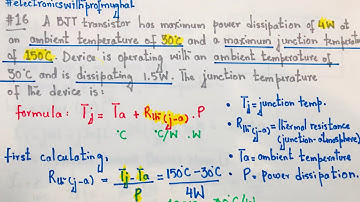 #electronicswithprofmughal
#16 A BJT transistor has maximum power dissipation of 4W at
an ambient temperature of 30°C and a maximum junction temperature
of 150°C. Device is operating with an ambient temperature of
30°C and is dissipating 1.5W. The junction temperature
of the device is:
formula: Tj = Ta + Rth(j-a) . P
°C °C/W . W
• Tj = junction temp.
• Rth(j-a) = thermal resistance
(junction-atmosphere)
• Ta = ambient temperature
• P = power dissipation.
first calculating,
Rth(j-a) = Tj - Ta / P = 150°C - 30°C / 4W
°C/W